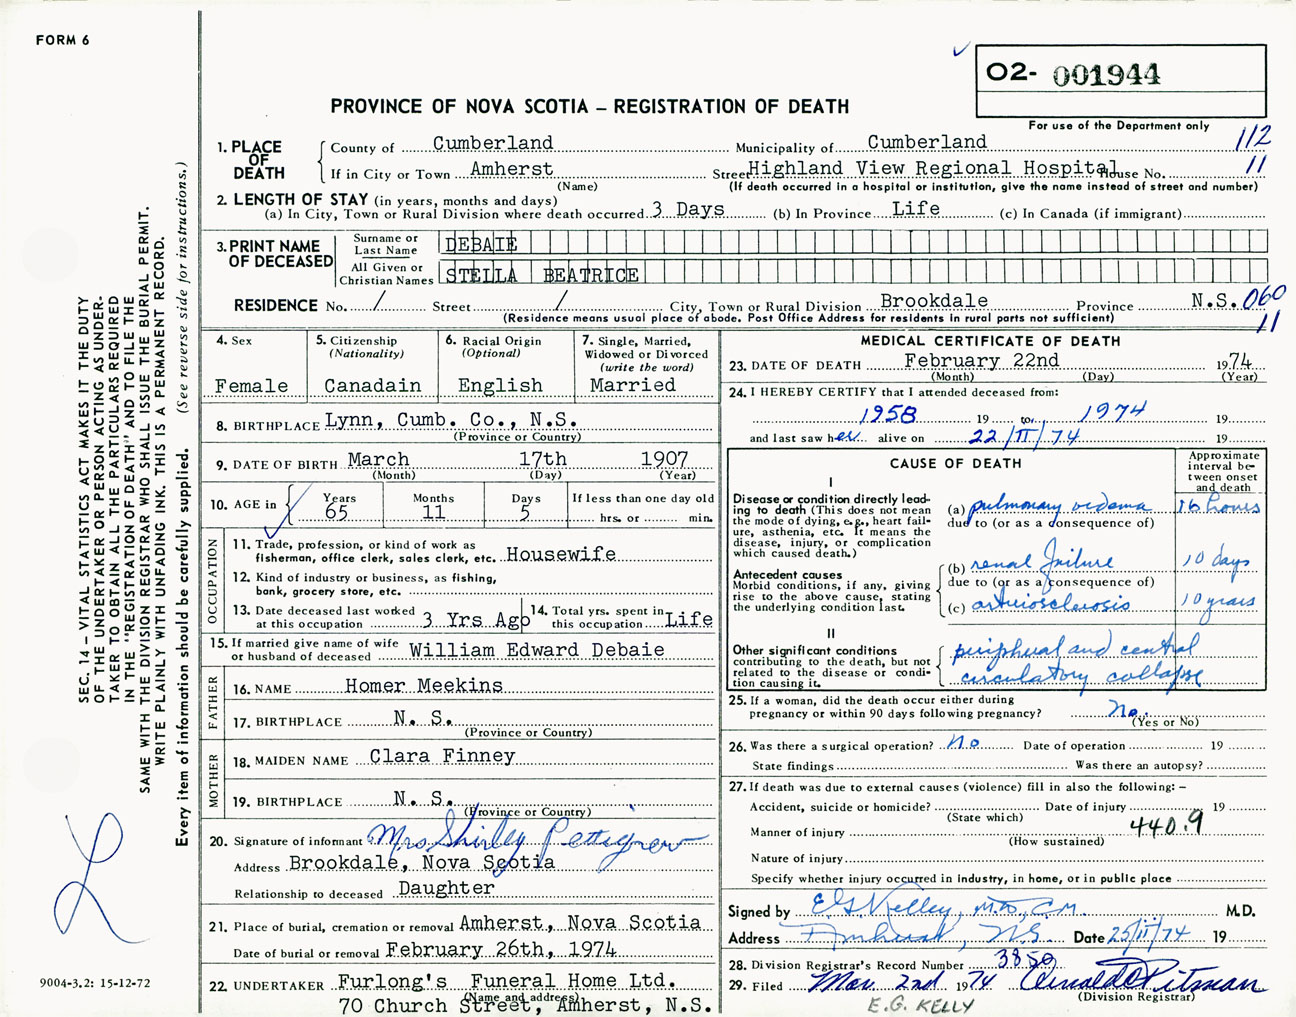 FORM 6
O2- 001944
PROVINCE OF NOVA SCOTIA – REGISTRATION OF DEATH
For use of the Department only
1. PLACE OF DEATH
County of Cumberland Municipality of Cumberland 112
If in City or Town Amherst Street Highland View Regional Hospital House No. 11
(Name) (If death occurred in a hospital or institution, give the name instead of street and number)
2. LENGTH OF STAY (in years, months and days)
(a) In City, Town or Rural Division where death occurred 3 Days (b) In Province Life (c) In Canada (if immigrant)
3. PRINT NAME OF DECEASED
Surname or Last Name DEBAIE
All Given or Christian Names STELLA BEATRICE
RESIDENCE No. / Street / City, Town or Rural Division Brookdale Province N.S. 060
(Residence means usual place of abode. Post Office Address for residents in rural parts not sufficient) 11
4. Sex
Female
5. Citizenship
(Nationality)
Canadain
6. Racial Origin
(Optional)
English
7. Single, Married,
Widowed or Divorced
(write the word)
Married
8. BIRTHPLACE Lynn, Cumb. Co., N.S.
(Province or Country)
9. DATE OF BIRTH March 17th 1907
(Month) (Day) (Year)
10. AGE in Years Months Days If less than one day old
65 11 5 hrs. or min.
OCCUPATION
11. Trade, profession, or kind of work as
fisherman, office clerk, sales clerk, etc. Housewife
12. Kind of industry or business, as fishing,
bank, grocery store, etc.
13. Date deceased last worked
at this occupation 3 Yrs Ago
14. Total yrs. spent in
this occupation Life
15. If married give name of wife
or husband of deceased William Edward Debaie
FATHER
16. NAME Homer Meekins
17. BIRTHPLACE N. S.
(Province or Country)
MOTHER
18. MAIDEN NAME Clara Finney
19. BIRTHPLACE N. S.
(Province or Country)
20. Signature of informant Mrs Shirley Pettigrew
Address Brookdale, Nova Scotia
Relationship to deceased Daughter
21. Place of burial, cremation or removal Amherst, Nova Scotia
Date of burial or removal February 26th, 1974
22. UNDERTAKER Furlong's Funeral Home Ltd.
(Name and address)
70 Church Street, Amherst, N.S.
MEDICAL CERTIFICATE OF DEATH
23. DATE OF DEATH February 22nd 1974
(Month) (Day) (Year)
24. I HEREBY CERTIFY that I attended deceased from:
1958 19 to 1974 19
and last saw her alive on 22/II/74 19
CAUSE OF DEATH
Approximate interval between onset and death
I
Disease or condition directly leading to death (This does not mean the mode of dying, e.g., heart failure, asthenia, etc. It means the disease, injury, or complication which caused death.)
(a) pulmonary oedema 16 hours
due to (or as a consequence of)
Antecedent causes
Morbid conditions, if any, giving rise to the above cause, stating the underlying condition last.
(b) renal failure 10 days
due to (or as a consequence of)
(c) arteriosclerosis 10 years
II
Other significant conditions
contributing to the death, but not related to the disease or condition causing it.
peripheral and central
circulatory collapse
25. If a woman, did the death occur either during
pregnancy or within 90 days following pregnancy? No.
(Yes or No)
26. Was there a surgical operation? No Date of operation 19
State findings Was there an autopsy?
27. If death was due to external causes (violence) fill in also the following: –
Accident, suicide or homicide? Date of injury 19
(State which)
Manner of injury 440.9
(How sustained)
Nature of injury
Specify whether injury occurred in industry, in home, or in public place
Signed by E G Kelley, M.D., C.M. M.D.
Address Amherst, N.S. Date 25/II/74 19
28. Division Registrar's Record Number 3850
29. Filed Mar. 2nd 1974
Pitman
(Division Registrar)
E.G. KELLY
SEC. 14 – VITAL STATISTICS ACT MAKES IT THE DUTY
OF THE UNDERTAKER OR PERSON ACTING AS UNDER-
TAKER TO OBTAIN ALL THE PARTICULARS REQUIRED
IN THE "REGISTRATION OF DEATH" AND TO FILE THE
SAME WITH THE DIVISION REGISTRAR WHO SHALL ISSUE THE BURIAL PERMIT.
WRITE PLAINLY WITH UNFADING INK. THIS IS A PERMANENT RECORD.
Every item of information should be carefully supplied. (See reverse side for instructions.)
9004-3.2: 15-12-72